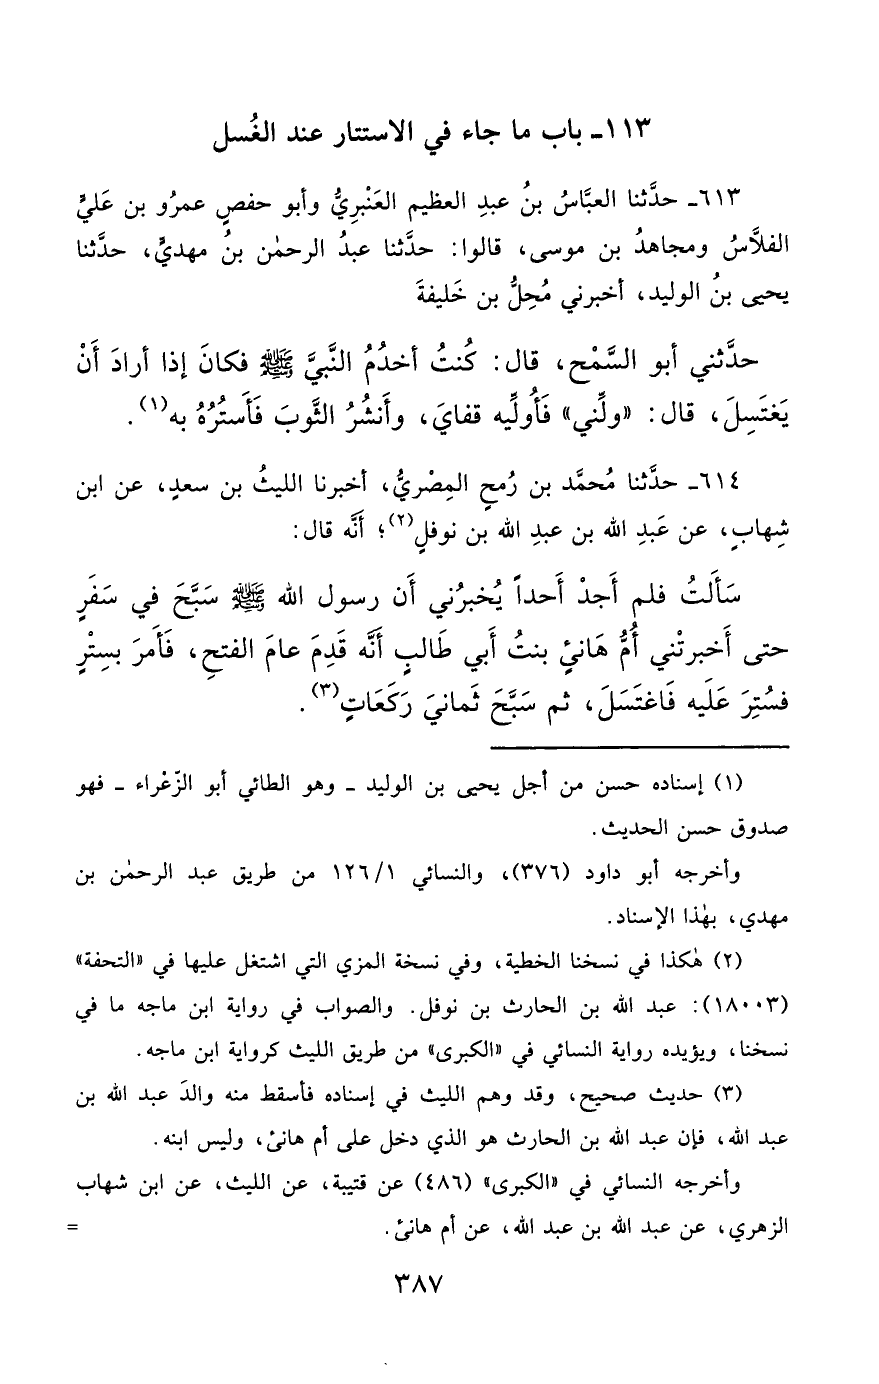 ١١٣ـ باب ما جاء في الاستتار عند الغُسل
٦١٣ـ حدَّثنا العبَّاسُ بنُ عبدِ العظيم العَنْبرِيُّ وأبو حفصٍ عمرُو بن عَليٍّ
الفلاَّسُ ومجاهدُ بن موسى، قالوا: حدَّثنا عبدُ الرحمٰن بنُ مهديٍّ، حدَّثنا
يحيى بنُ الوليد، أخبرني مُحِلُّ بن خَليفةَ
حدَّثني أبو السَّمْح، قال: كُنتُ أخدُمُ النَّبيَّ ﷺ فكانَ إذا أرادَ أَنْ
يَغتَسِلَ، قال: «ولِّني» فَأُولِّيه قفايَ، وأَنشُرُ الثَّوبَ فَأَستُرُهُ به(١).
٦١٤ـ حدَّثنا مُحمَّد بن رُمحٍ المِصْريُّ، أخبرنا الليثُ بن سعدٍ، عن ابن
شِهابٍ، عن عَبدِ الله بن عبدِ الله بن نوفلٍ(٢)؛ أنَّه قال:
سَأَلتُ فلم أَجدْ أَحداً يُخبرُني أَن رسول الله ﷺ سَبَّحَ في سَفَرٍ
حتى أَخبرتْني أُمُّ هَانئٍ بنتُ أَبي طَالبٍ أَنَّه قَدِمَ عامَ الفتحِ، فَأَمرَ بسِتْرٍ
فسُتِرَ عَلَيه فَاغتَسَلَ، ثم سَبَّحَ ثَمانيَ رَكَعَاتٍ(٣).
(١) إسناده حسن من أجل يحيى بن الوليد ـ وهو الطائي أبو الزّعْراء ـ فهو
صدوق حسن الحديث.
وأخرجه أبو داود (٣٧٦)، والنسائي ١٢٦/١ من طريق عبد الرحمٰن بن
مهدي، بهٰذا الإسناد.
(٢) هٰكذا في نسخنا الخطية، وفي نسخة المزي التي اشتغل عليها في «التحفة»
(١٨٠٠٣): عبد الله بن الحارث بن نوفل. والصواب في رواية ابن ماجه ما في
نسخنا، ويؤيده رواية النسائي في «الكبرى» من طريق الليث كرواية ابن ماجه.
(٣) حديث صحيح، وقد وهم الليث في إسناده فأسقط منه والدَ عبد الله بن
عبد الله، فإن عبد الله بن الحارث هو الذي دخل على أم هانئ، وليس ابنه.
وأخرجه النسائي في «الكبرى» (٤٨٦) عن قتيبة، عن الليث، عن ابن شهاب
الزهري، عن عبد الله بن عبد الله، عن أم هانئ. =
٣٨٧